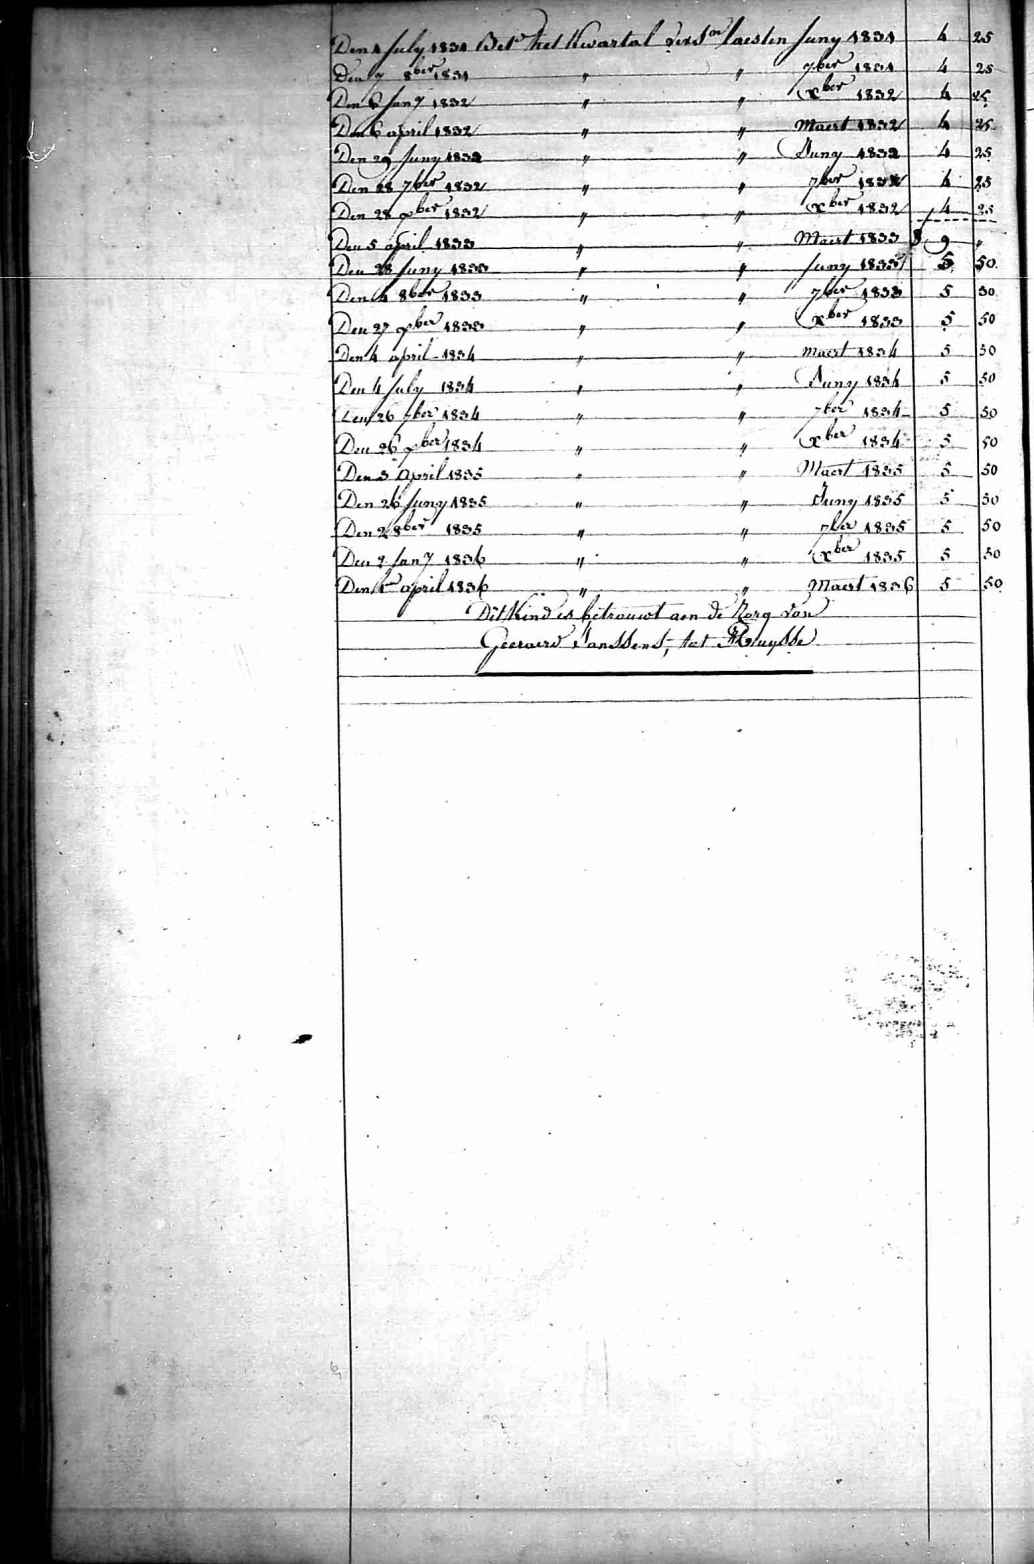 Den 1 July 1831 Bet.d het Kwartal verst.en laesten Juny 1831 4 25
Den 7 8ber 1831 " " 7ber 1831 4 25
Den 6 Jany 1832 " " Xber 1832 4 25
Den 6 april 1832 " " Maert 1832 4 25
Den 29 Juny 1832 " " Juny 1832 4 25
Den 28 7ber 1832 " " 7ber 1832 4 25
Den 28 Xber 1832 " " Xber 1832 4 25
Den 5 april 1833 " " Maert 1833 9 "
Den 28 Juny 1833 " " Juny 1833 5 50
Den 4 8ber 1833 " " 7ber 1833 5 50
Den 27 Xber 1833 " " Xber 1833 5 50
Den 4 april 1834 " " maert 1834 5 50
Den 4 July 1834 " " Juny 1834 5 50
Den 26 7ber 1834 " " 7ber 1834 5 50
Den 26 Xber 1834 " " Xber 1834 5 50
Den 3 April 1835 " " Maert 1835 5 50
Den 26 Juny 1835 " " Juny 1835 5 50
Den 2 8ber 1835 " " 7ber 1835 5 50
Den 2 Jany 1836 " " Xber 1835 5 50
Den 1en april 1836 " " Maert 1836 5 50
Dit Kind is betrouwt aen de Zorg van
Geeraerd Janssens, tot